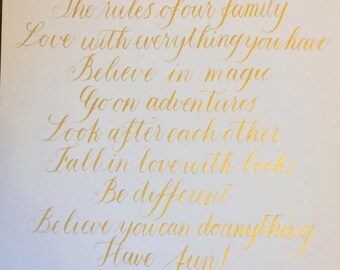 The rules of our family
Love with everything you have
Believe in magic
Go on adventures
Look after each other
Fall in love with books
Be different
Believe you can do anything
Have fun!